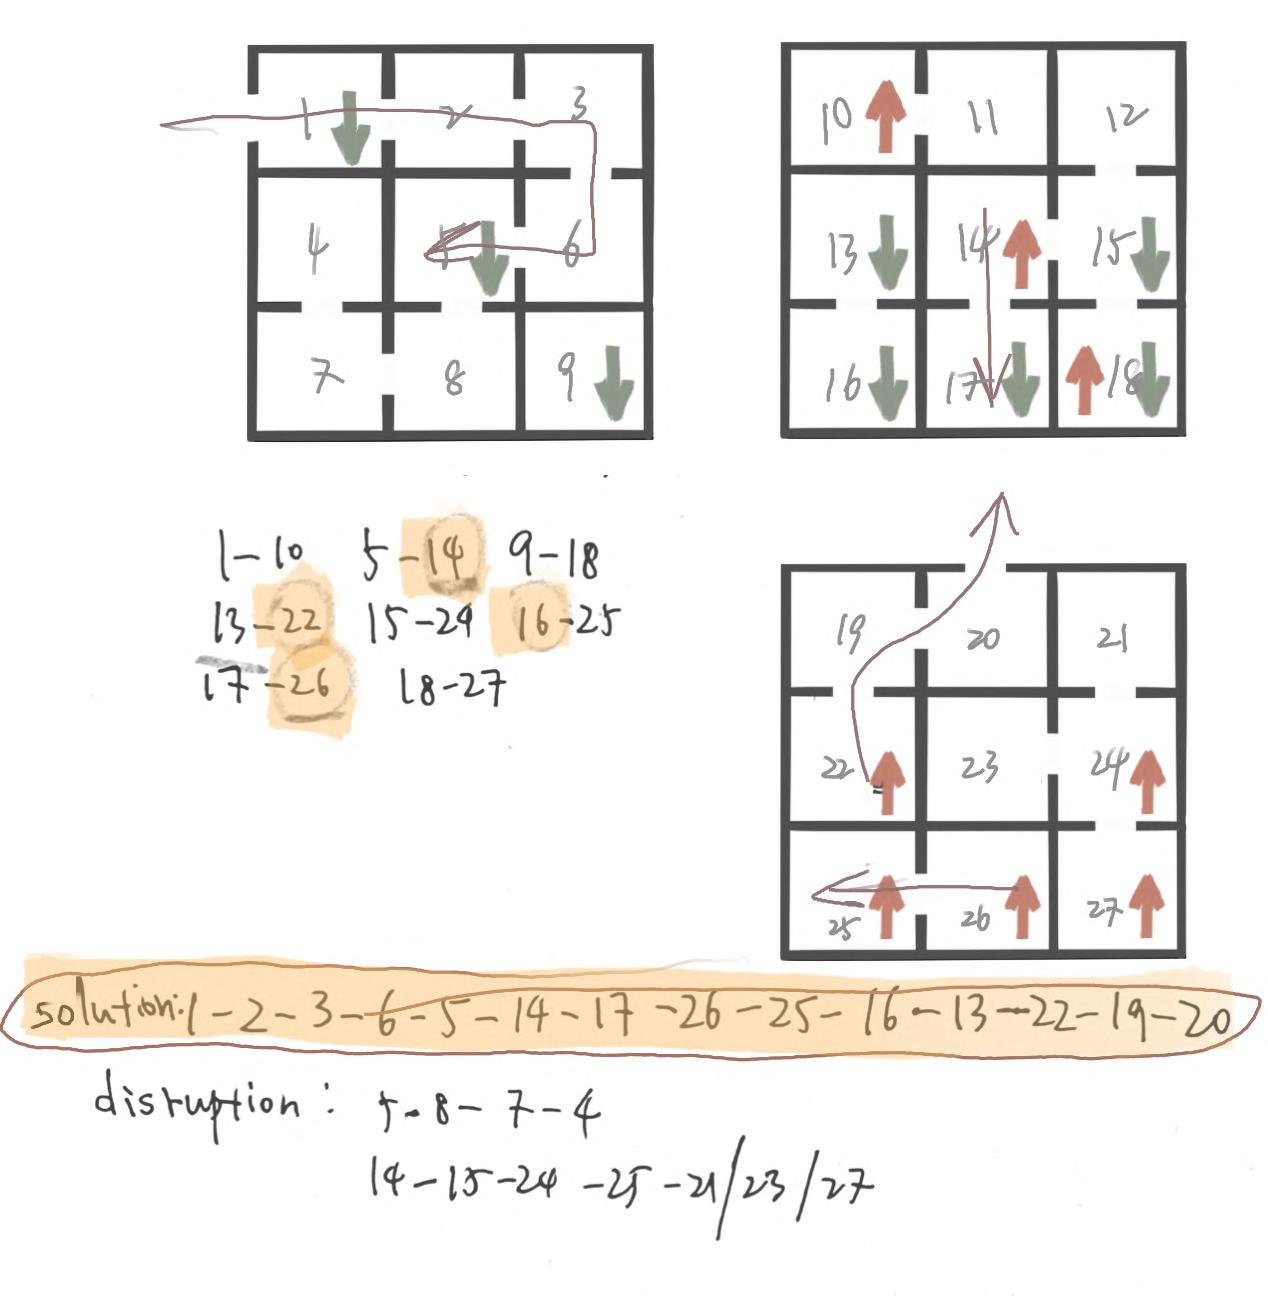 1 2 3
4 5 6
7 8 9
10 11 12
13 14 15
16 17 18
1-10 5-14 9-18
13-22 15-24 16-25
17-26 18-27
19 20 21
22 23 24
25 26 27
solution:1-2-3-6-5-14-17-26-25-16-13-22-19-20
disruption: 5-8-7-4
14-15-24-25-21/23/27